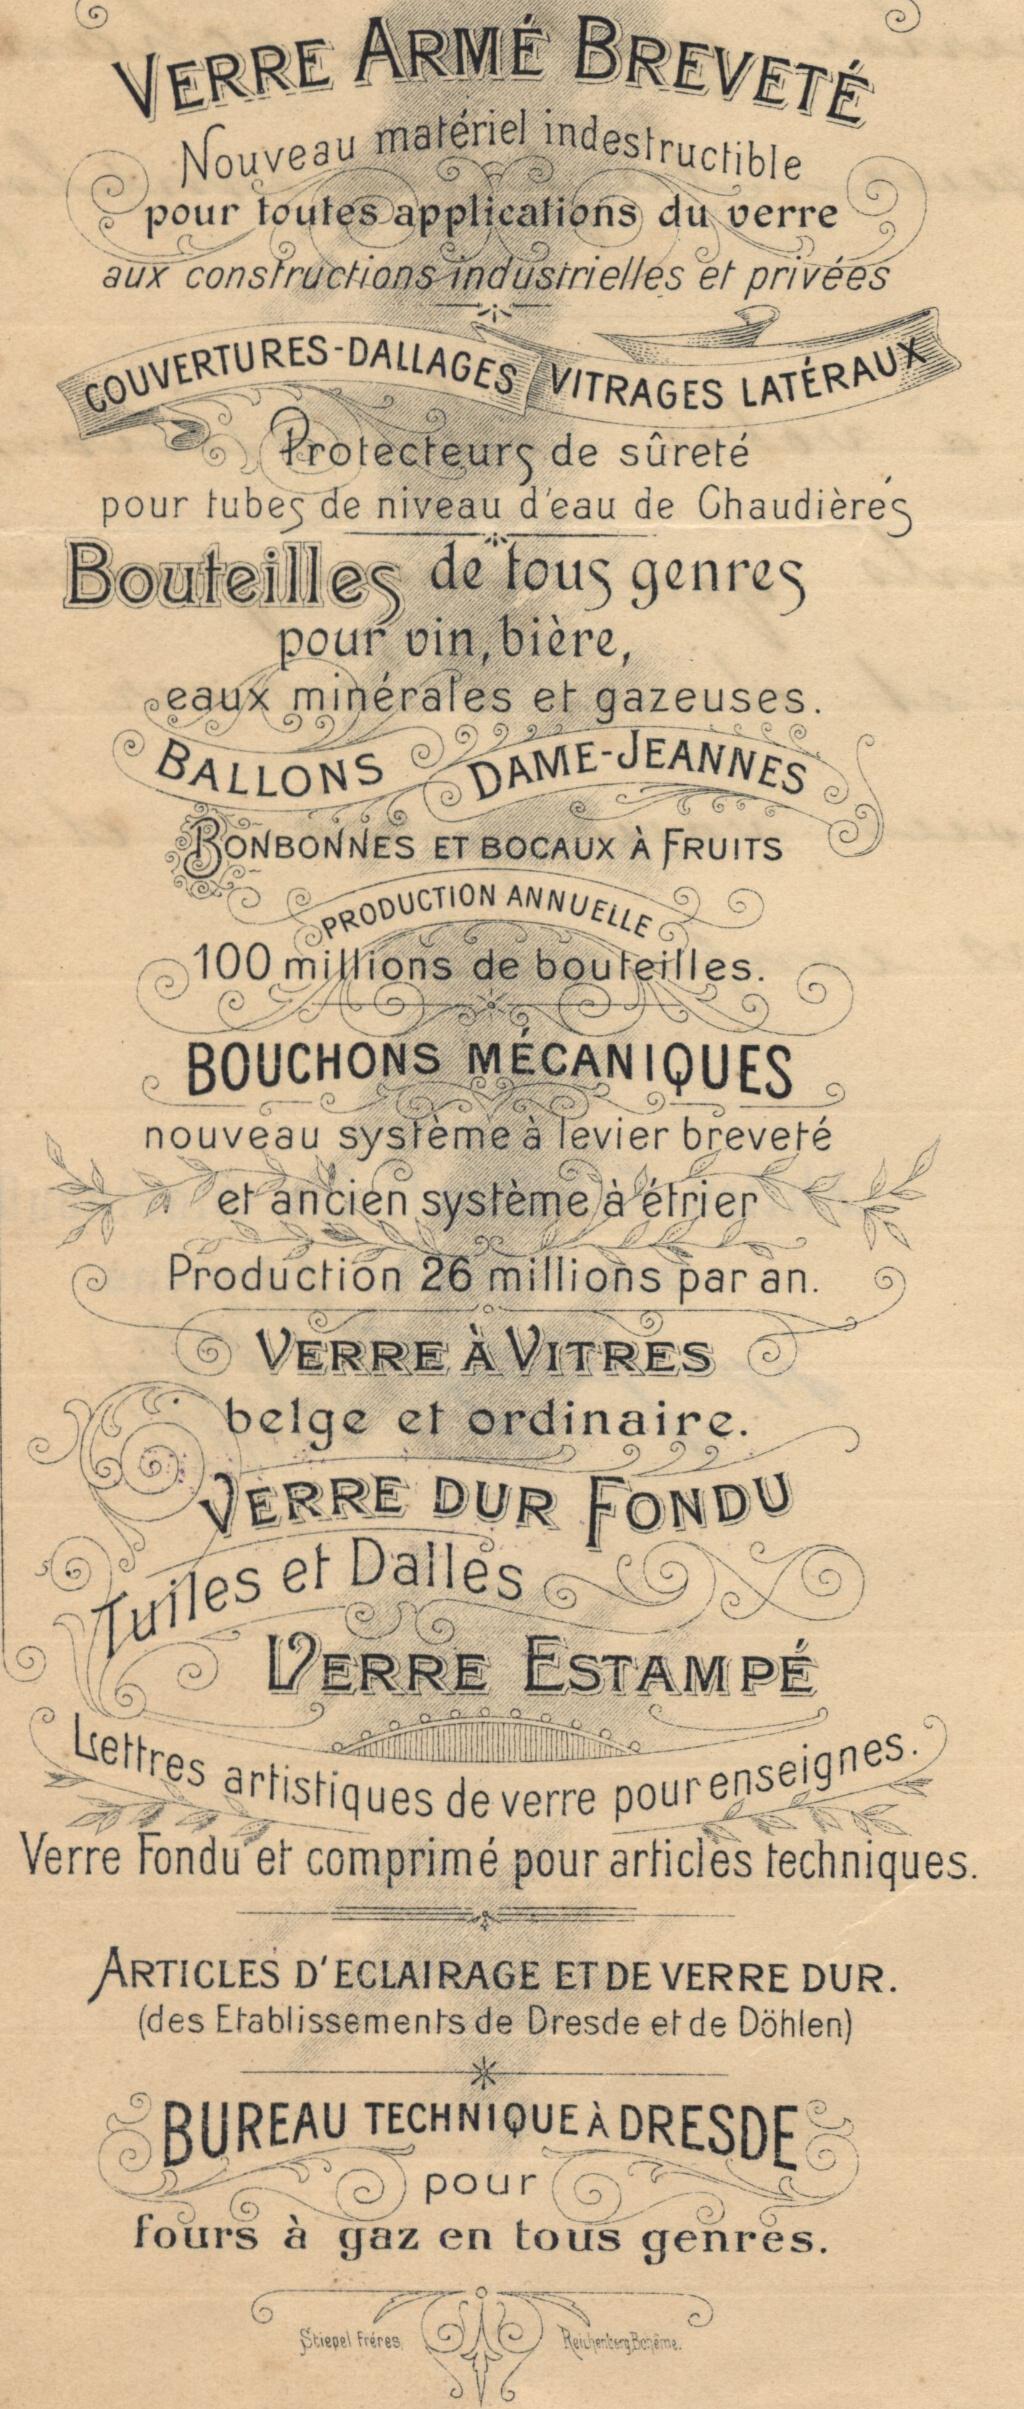 VERRE ARMÉ BREVETÉ
Nouveau matériel indestructible
pour toutes applications du verre
aux constructions industrielles et privées
COUVERTURES-DALLAGES VITRAGES LATÉRAUX
Protecteurs de sûreté
pour tubes de niveau d'eau de Chaudières
Bouteilles de tous genres
pour vin, bière,
eaux minérales et gazeuses.
BALLONS DAME-JEANNES
BONBONNES ET BOCAUX À FRUITS
PRODUCTION ANNUELLE
100 millions de bouteilles.
BOUCHONS MÉCANIQUES
nouveau système à levier breveté
et ancien système à étrier
Production 26 millions par an.
VERRE À VITRES
belge et ordinaire.
VERRE DUR FONDU
Tuiles et Dalles
VERRE ESTAMPÉ
Lettres artistiques de verre pour enseignes.
Verre Fondu et comprimé pour articles techniques.
ARTICLES D'ECLAIRAGE ET DE VERRE DUR.
(des Etablissements de Dresde et de Döhlen)
BUREAU TECHNIQUE À DRESDE
pour
fours à gaz en tous genres.
Stiepel Fréres, Reichenberg, Bohême.